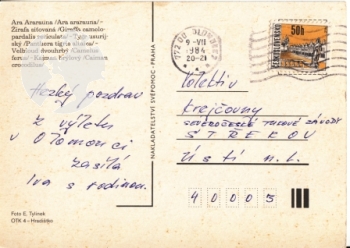 Ara Ararauna /Ara ararauna/-
Žirafa síťovaná /Giraffa camelo-
pardalis reticulata/-Tygr ussurij-
ský /Panthera tigris
Velbloud dvouhrbý /Camelus
ferus/-Kajman brýlový /Caiman
crocodilus/
Hezký pozdrav
z výletu
v Olomouci
zasílá
Iva s rodinou.
Foto E. Tylínek
OTK 4 - Hradišťko
NAKLADATELSTVÍ SVÉPOMOC - PRAHA
772 00 OLOMOUC 2
9.-VII
1984
20-21
50h
ČESKOSLOVENSKO
Kolektiv
Krejčovny
SEVEROČESKÉ TUKOVÉ ZÁVODY
STŘEKOV
Ústí n. L.
40003